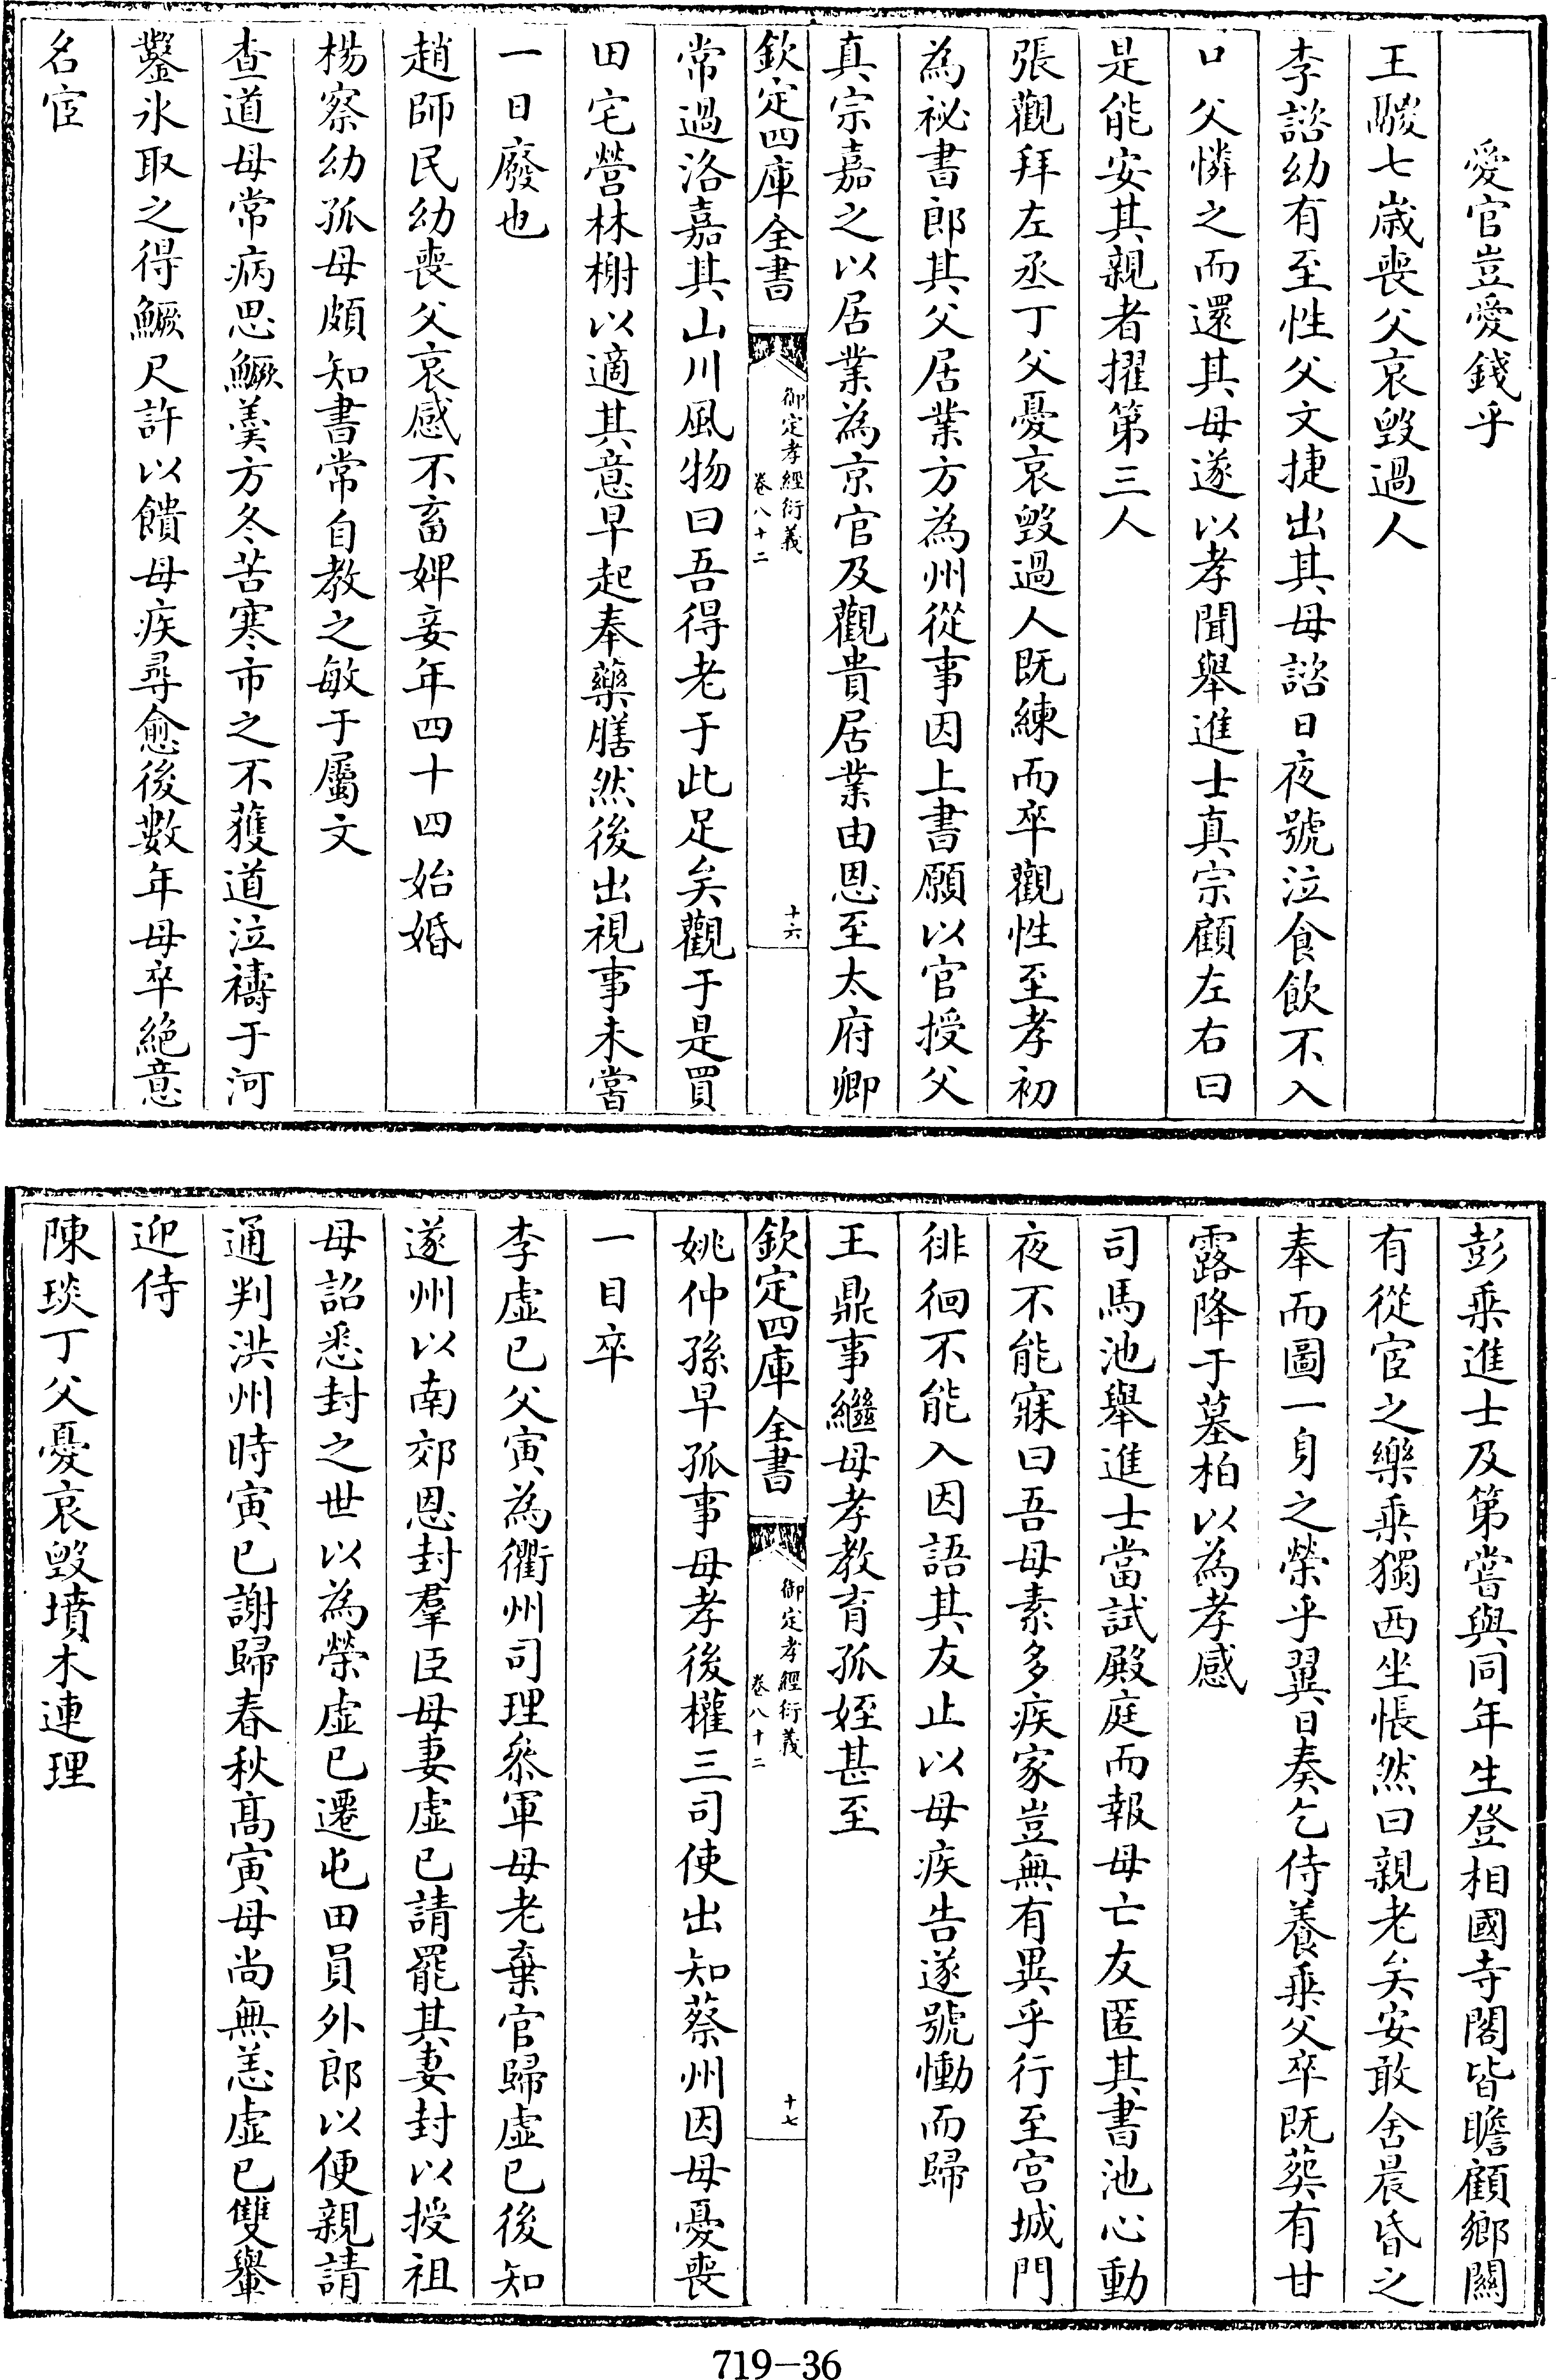 愛官豈愛錢乎
王騣七歲喪父哀毀過人
李諮幼有至性父文捷出其母諮日夜號泣食飲不入
口父憐之而還其母遂以孝聞舉進士真宗顧左右曰
是能安其親者擢第三人
張觀拜左丞丁父憂哀毀過人既練而卒觀性至孝初
為祕書郎其父居業方為州從事因上書願以官授父
真宗嘉之以居業為京官及觀貴居業由恩至太府卿
欽定四庫全書
御定孝經衍義
卷八十二
十六
常過洛嘉其山川風物曰吾得老于此足矣觀于是買
田宅營林榭以適其意早起奉藥膳然後出視事未嘗
一日廢也
趙師民幼喪父哀感不畜婢妾年四十四始婚
楊察幼孤母頗知書常自教之敏于屬文
查道母常病思鱖羹方冬苦寒市之不獲道泣禱于河
鑿氷取之得鱖尺許以饋母疾尋愈後數年母卒絕意
名宦
彭乗進士及第嘗與同年生登相國寺閣皆瞻顧鄉關
有從宦之樂乗獨西坐悵然曰親老矣安敢舍晨昏之
奉而圖一身之榮乎翼日奏乞侍養乗父卒既葬有甘
露降于墓柏以為孝感
司馬池舉進士當試殿庭而報母亡友匿其書池心動
夜不能寐曰吾母素多疾家豈無有異乎行至宫城門
徘徊不能入因語其友止以母疾告遂號慟而歸
王鼎事繼母孝教育孤姪甚至
欽定四庫全書
御定孝經衍義
卷八十二
十七
姚仲孫早孤事母孝後權三司使出知蔡州因母憂喪
一目卒
李虛已父寅為衢州司理參軍母老棄官歸虛已後知
遂州以南郊恩封羣臣母妻虛已請罷其妻封以授祖
母詔悉封之世以為榮虛已遷屯田員外郎以便親請
通判洪州時寅已謝歸春秋髙寅母尚無恙虛已雙轝
迎侍
陳琰丁父憂哀毀墳木連理
719-36